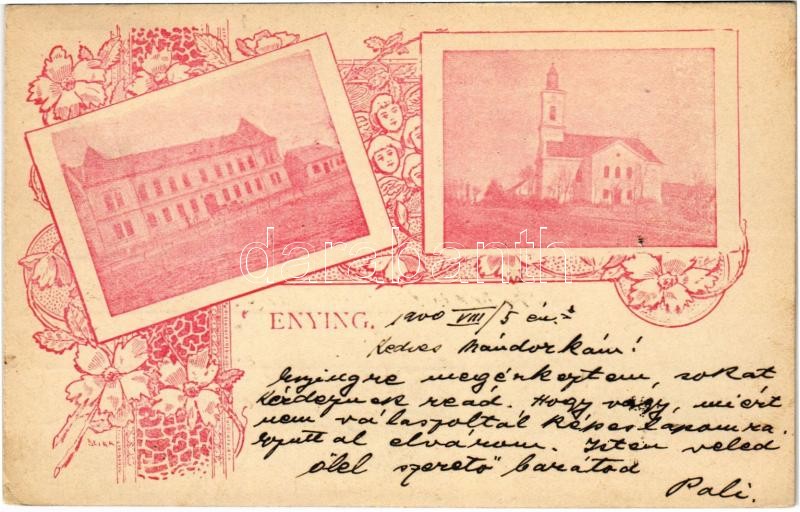 darabanth
ENYING, 1900 VIII/5 én.
Kedves Nándorkám!
Enyingre megérkeztem, sokat
kérdeznek reád. Hogy vagy, miért
nem válaszoltál képeslapomra.
Egyuttal elvárom. Isten veled
ölel szerető barátod
Pali.